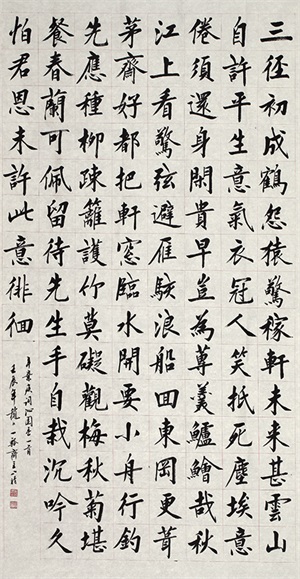 三徑初成鶴怨猿驚稼軒未来甚雲山
自許平生意氣衣冠人笑抵死塵埃意
倦須還身閑貴早豈為蓴羹鱸鱠哉秋
江上看驚弦避雁駭浪船回東岡更葺
茅齋好都把軒窓臨水開要小舟行釣
先應種柳疎籬護竹莫礙觀梅秋菊堪
餐春蘭可佩留待先生手自栽沉吟久
怕君恩未許此意徘徊
辛棄疾詞沁園春一首
壬辰年